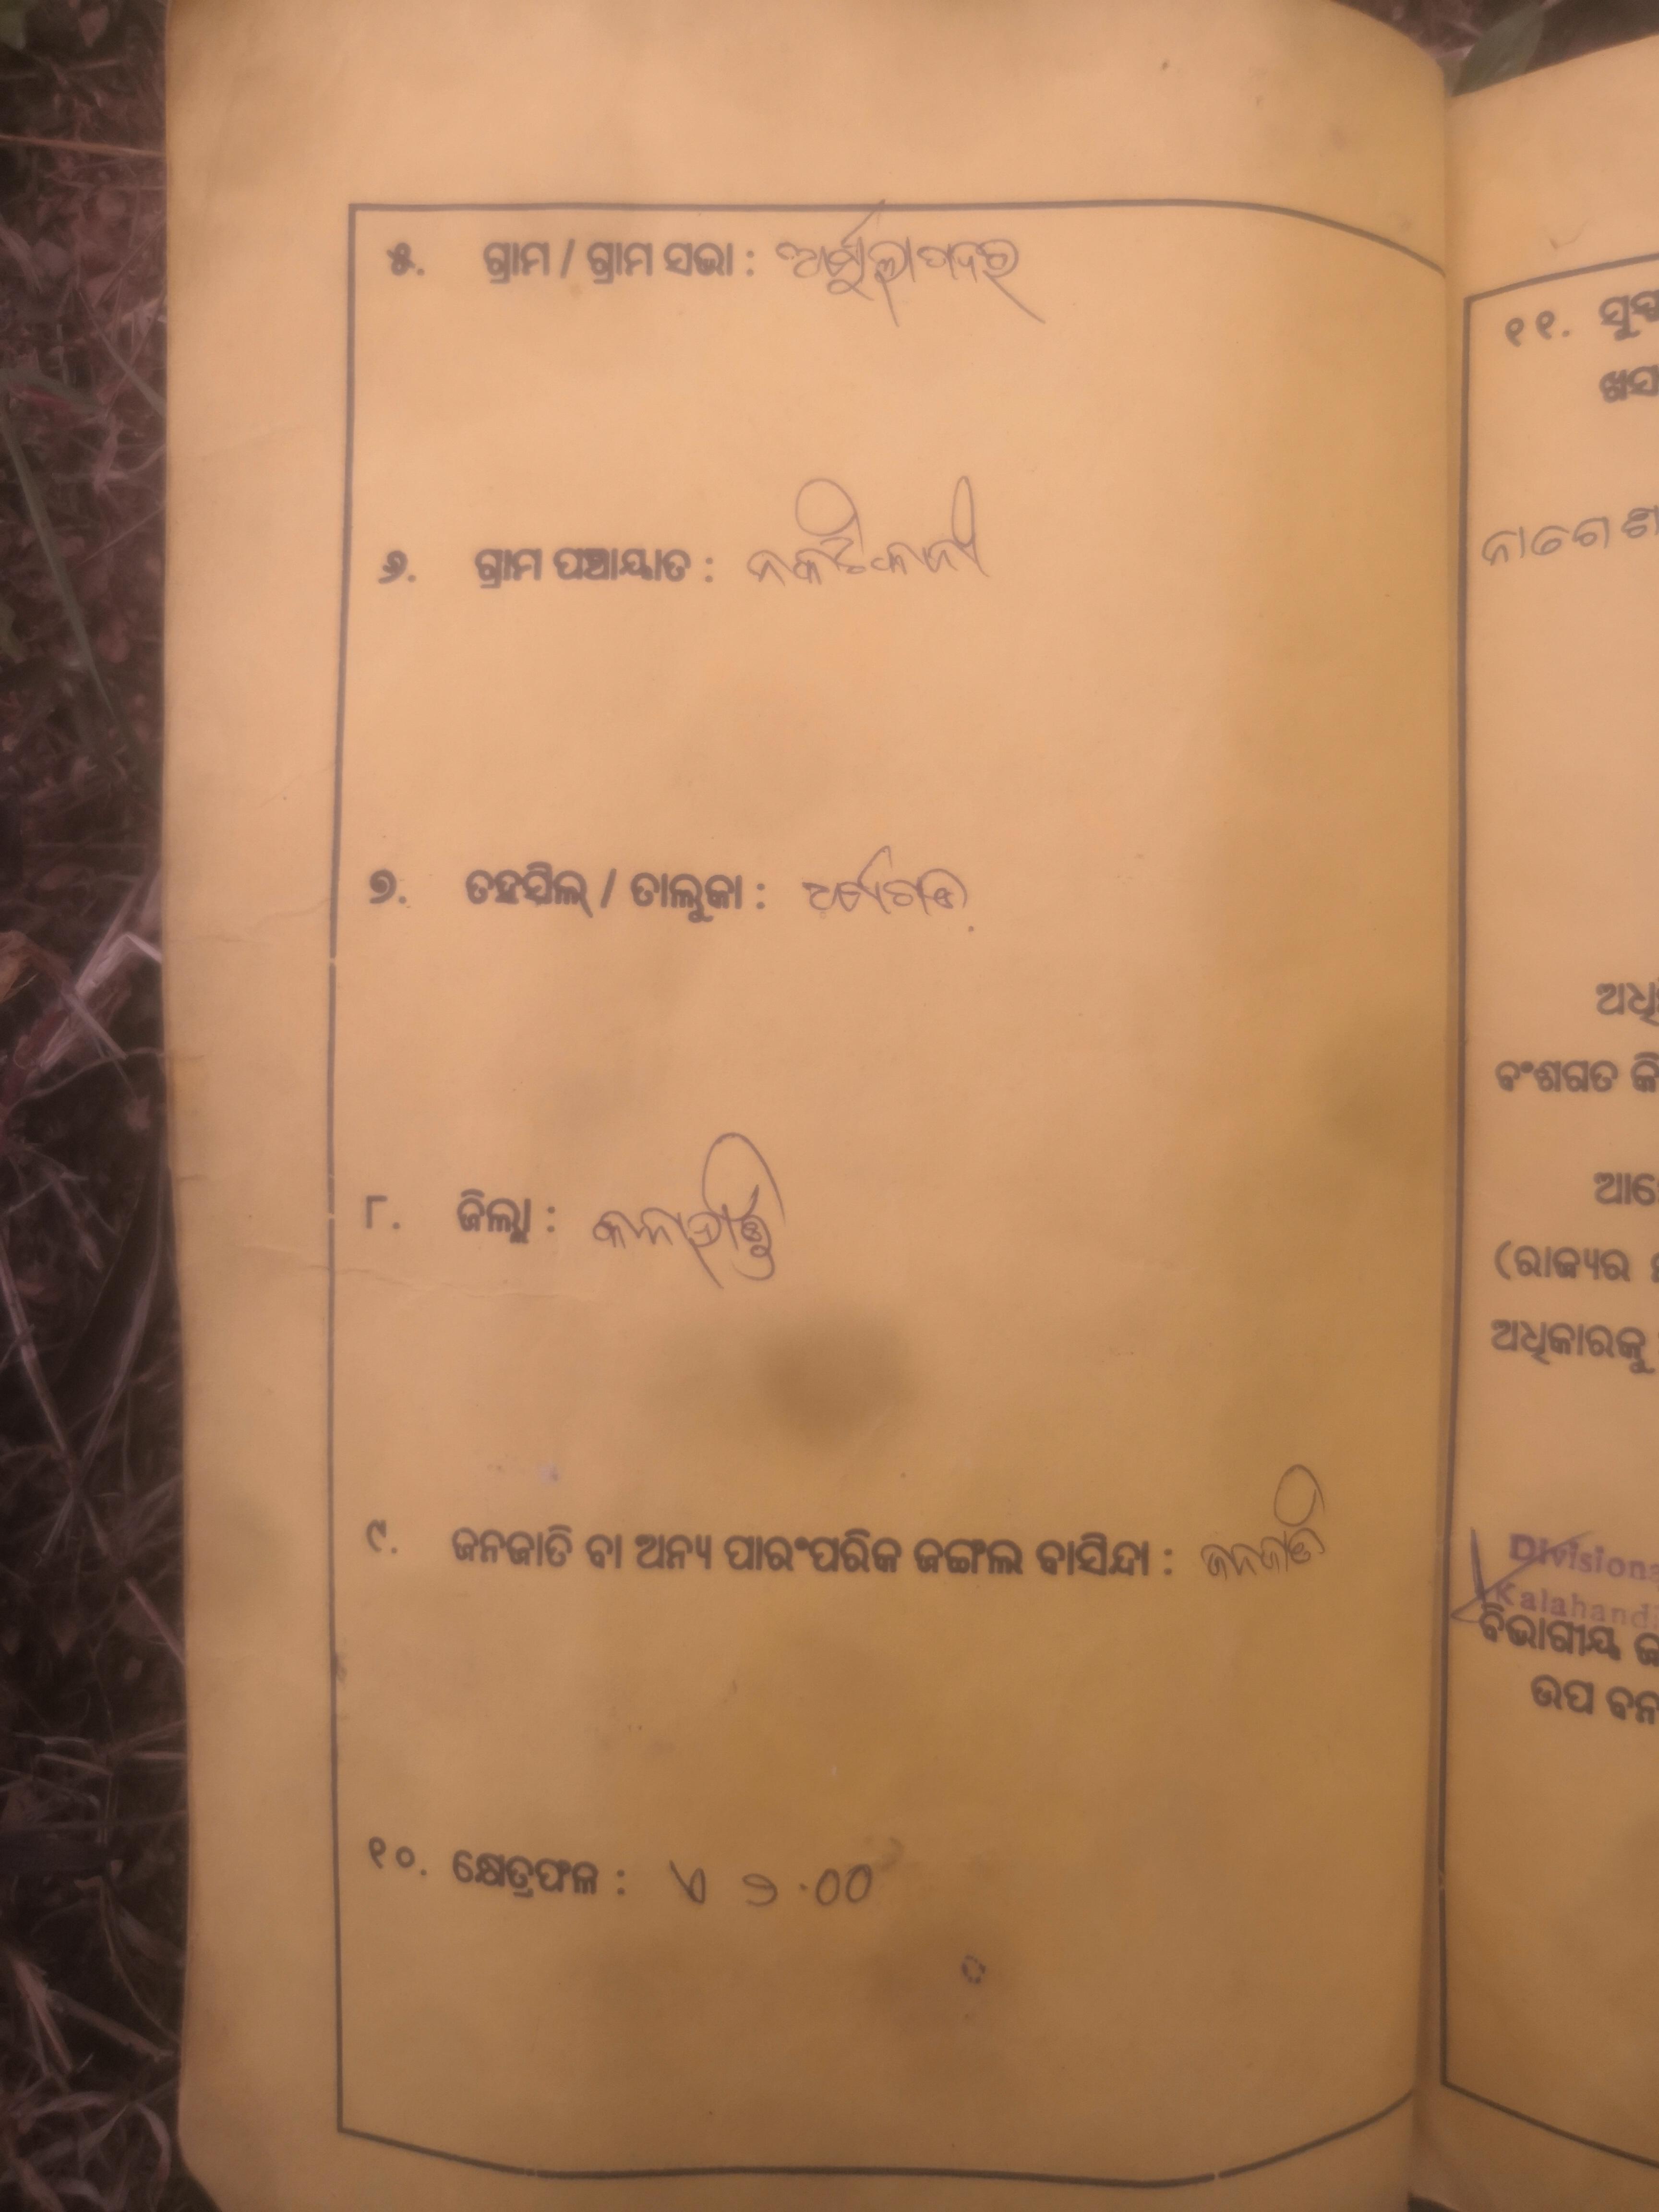 ୫. ଗ୍ରାମ / ଗ୍ରାମ ସଭା :
୬. ଗ୍ରାମ ପଞ୍ଚାୟାତ : ନକଟିକାନୀ
୭. ତହସିଲ୍ / ତାଲୁକା :
୮. ଜିଲ୍ଲା : କଳାହାଣ୍ଡି
୯. ଜନଜାତି ବା ଅନ୍ୟ ପାରଂପରିକ ଜଙ୍ଗଲ ବାସିନ୍ଦା : ଜନଜାତି
୧୦. କ୍ଷେତ୍ରଫଳ : ଏ ୨.୦୦
୧୧.
ବଂଶଗତ
(ରାଜ୍ୟର
ଅଧିକାରକୁ
Divisiona
Kalahandi
ବିଭାଗୀୟ
ଉପ ବନ